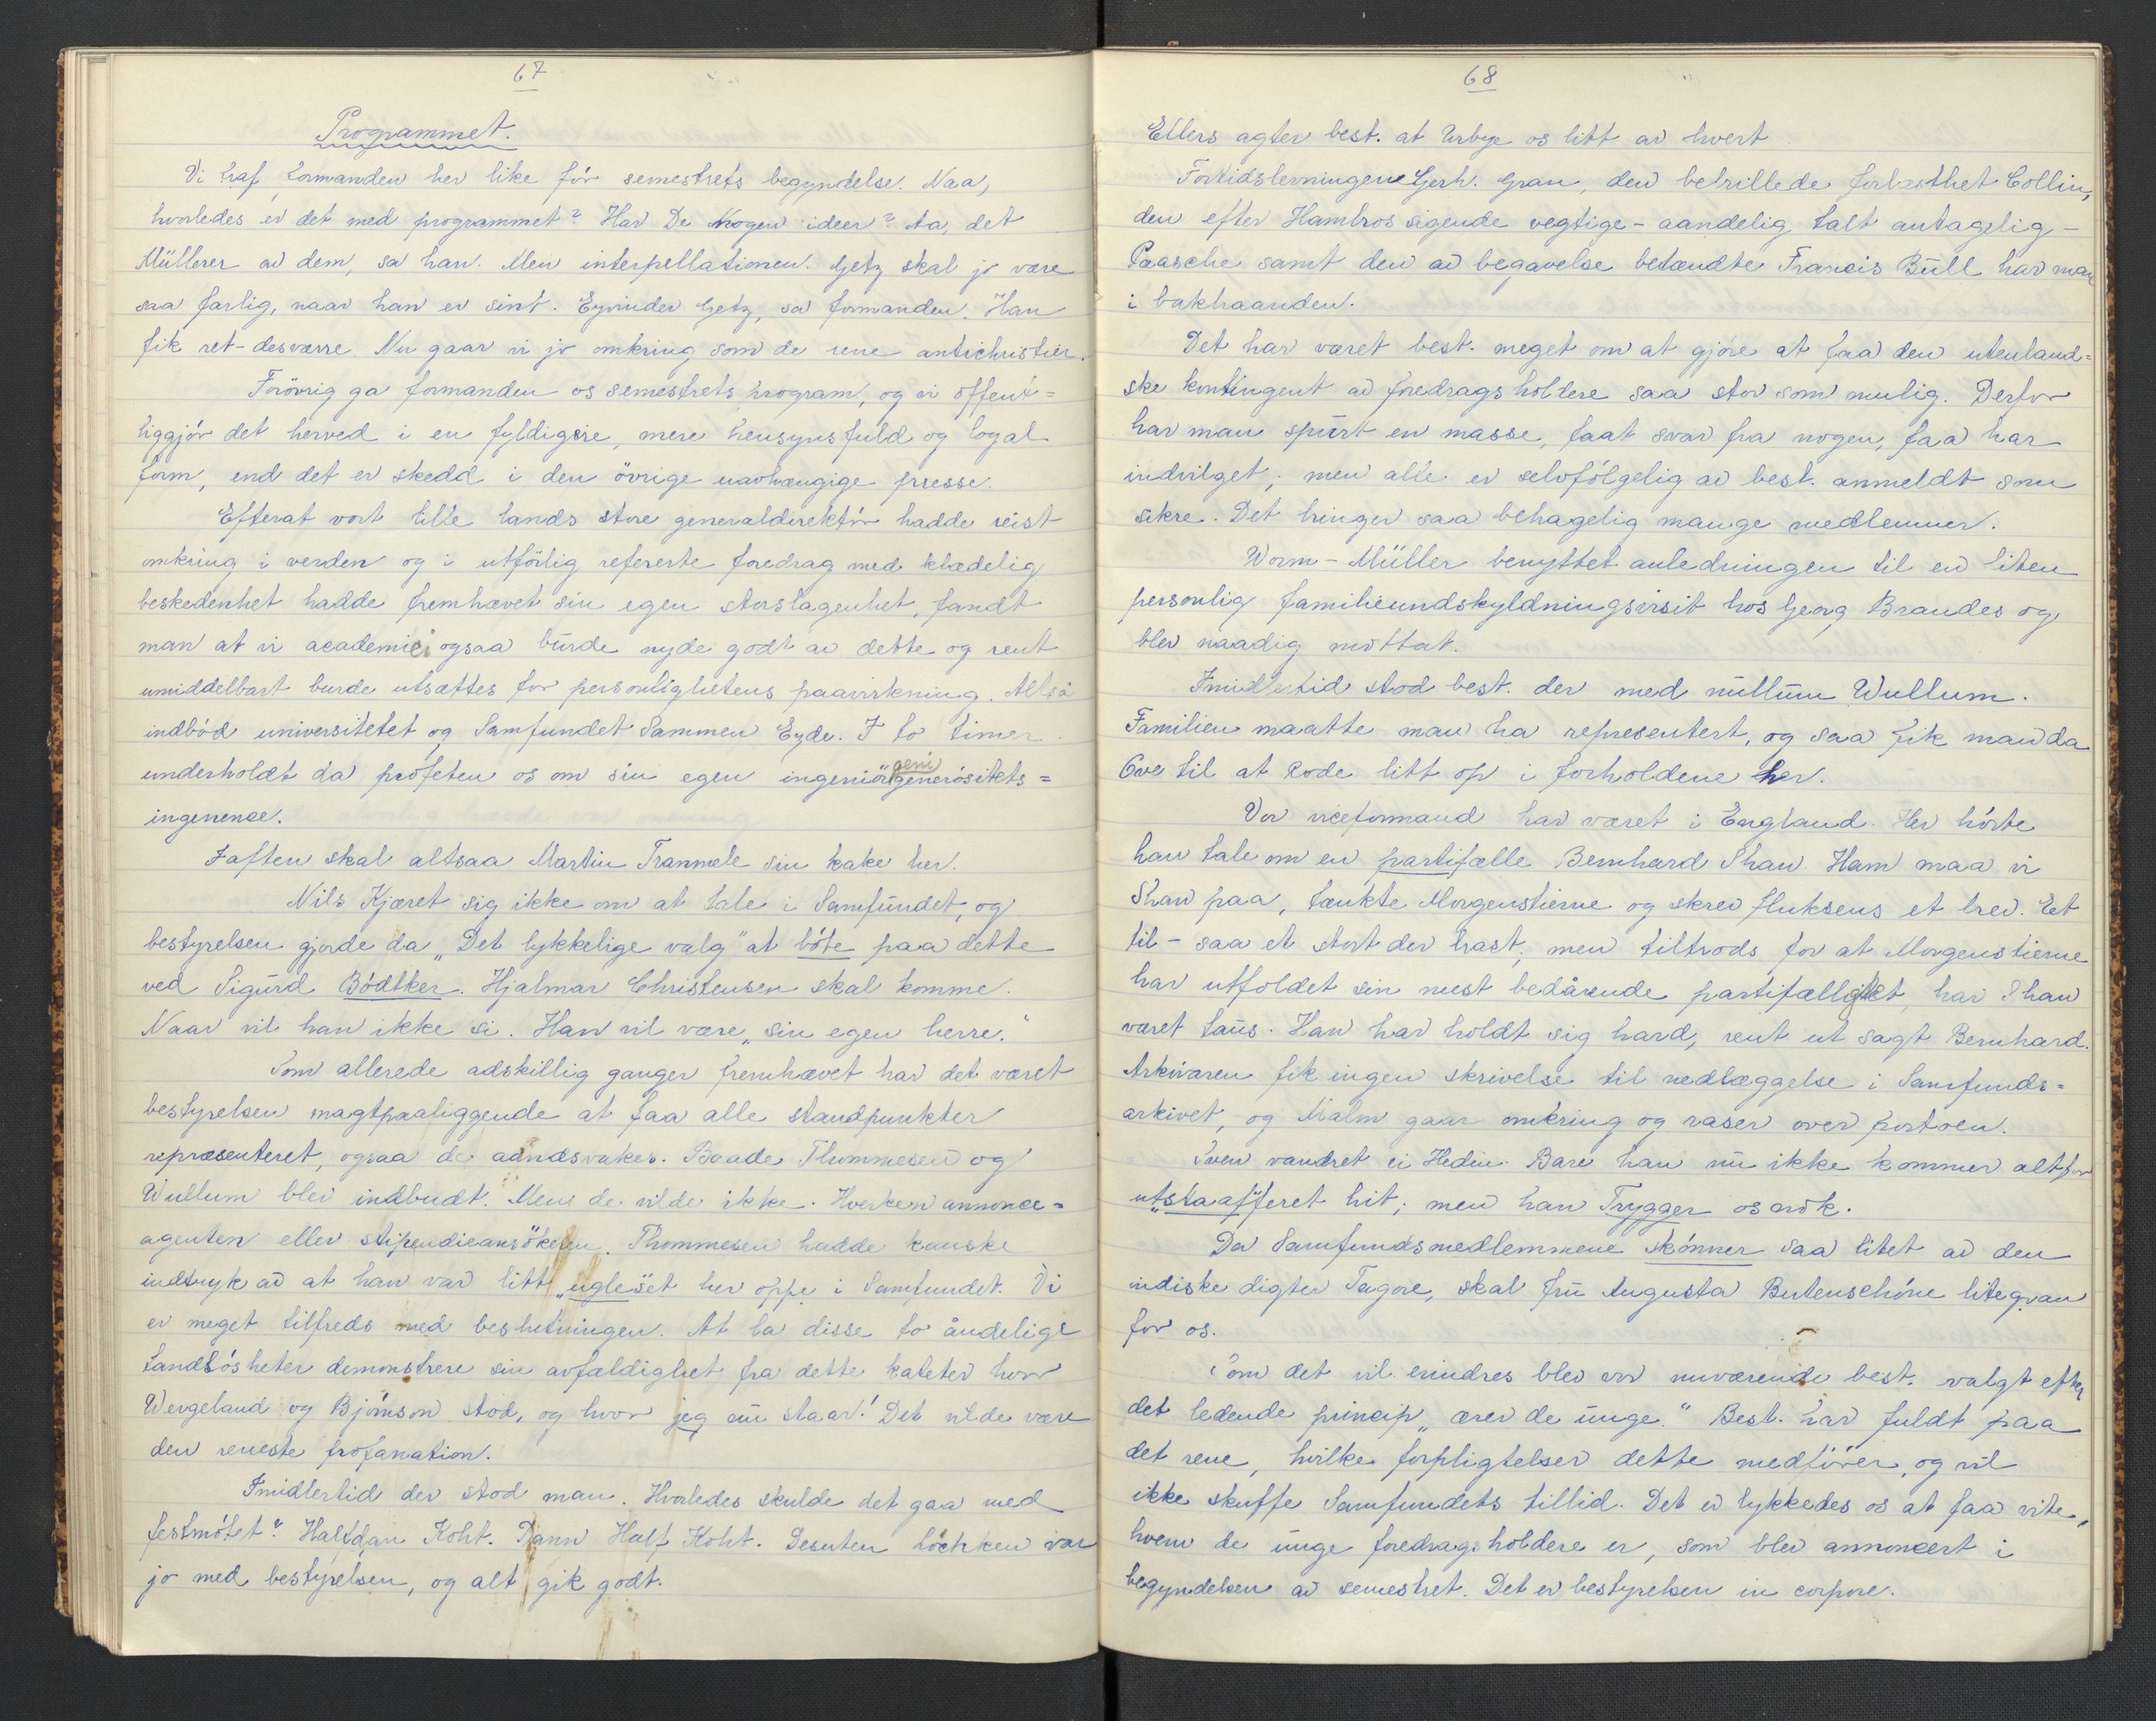 67
Programmet.
Vi traf formanden her like før semestrets begyndelse. Naa,
hvorledes er det med programmet? Har De nogen ideer? Aa, det
Müllerer av dem, sa han. Men interpellationen. Getz skal jo være
saa farlig, naar han er sint. Eyvinder Getz, sa formanden. Han
fik ret - desværre. Nu gaar vi jo omkring som de rene antichrister.
Forövrig ga formanden os semestrets program, og vi offent=
liggjör det herved i en fyldigere, mere hensynsfuld og loyal
form, end det er skedd i den övrige uavhængige presse.
Efterat vort lille lands store generaldirektör hadde reist
omkring i verden og i utförlig refererte foredrag med klædelig
beskedenhet hadde fremhævet sin egen storslagenhet, fandt
man at vi academici ogsaa burde nyde godt av dette og rent
umiddelbart burde utsættes for personlighetens paavirkning. Altsa
indböd universitetet og Samfundet Sammen Eyde. I to timer
underholdt da profeten os om sin egen ingeniörgenigenerösitets=
ingenence.
Iaften skal altsaa Martin Tranmæle sin kake her.
Nils Kjæret sig ikke om at tale i Samfundet, og
bestyrelsen gjorde da „Det lykkelige valg" at böte paa dette
ved Sigurd Bödtker. Hjalmar Christensen skal komme.
Naar vil han ikke si. Han vil være „sin egen herre."
Som allerede adskillig ganger fremhævet har det været
bestyrelsen magtpaaliggende at faa alle standpunkter
repræsenteret, ogsaa de aandsvakes. Baade Thommesen og
Wullum blev indbudt. Men de vilde ikke. Hverken annonce=
agenten eller stipendieansökeren. Thommesen hadde kanske
indtryk av at han var litt „ugleset her oppe i Samfundet. Vi
er meget tilfreds med beslutningen. At la disse to åndelige
tandlösheter demonstrere sin avfældighet fra dette kateter hvor
Wergeland og Björnson stod, og hvor jeg nu staar! Det vilde være
den reneste profanation.
Imidlertid der stod man. Hvorledes skulde det gaa med
festmötet? Halfdan Koht. Dann Half Koht. Desuten Löchken var
jo med bestyrelsen, og alt gik godt.
68
Ellers agter best. at Urbye os litt av hvert
Fortidslevningene Gerh. Gran, den bebrillede forlæsthet Collin,
den efter Hambros sigende vegtige - aandelig talt antagelig -
Paasche samt den av begavelse betændte Francis Bull har man
i bakhaanden.
Det har været best. meget om at gjöre at faa den utenland=
ske kontingent av foredragsholdere saa stor som mulig. Derfor
har man spurt en masse, faat svar fra nogen, faa har
indvilget; men alle er selvfölgelig av best. anmeldt som
sikre. Det bringer saa behagelig mange medlemmer.
Worm-Müller benyttet anledningen til en liten
personlig familieundskyldningsvisit hos Georg Brandes og
blev naadig mottat.
Imidlertid stod best. der med nullum Wullum.
Familien maatte man ha representert, og saa fik man da
Ove til at Rode litt op i forholdene her.
Vor viceformand har været i England. Her hörte
han tale om en partifælle Bernhard Shaw. Ham maa vi
Shaw paa, tænkte Morgenstierne og skrev fluksens et brev. Et
til - saa et stort der trast; men tiltrods for at Morgenstierne
har utfoldet sin mest bedårende partifællighet, har Shaw
været taus. Han har holdt sig hard, rent ut sagt Bernhard.
Arkivaren fik ingen skrivelse til nedlæggelse i Samfunds=
arkivet, og Malm gaar omkring og raser over portoen.
Sven vandret ei Hedin. Bare han nu ikke kommer altfor
ut„staafferet hit; men han Trygger os nok.
Da Samfundsmedlemmene skönner saa litet av den
indiske digter Tagore, skal fru Augusta Butenschöne litegran
for os.
Som det vil erindres blev vor nuværende best. valgt efter
det ledende princip „ærer de unge." Best. har fuldt paa
det rene, hvilke forpligtelser dette medförer, og vil
ikke skuffe Samfundets tillid. Det er lykkedes os at faa vite,
hvem de unge foredragsholdere er, som blev annoncert i
begyndelsen av semestret. Det er bestyrelsen in corpore.